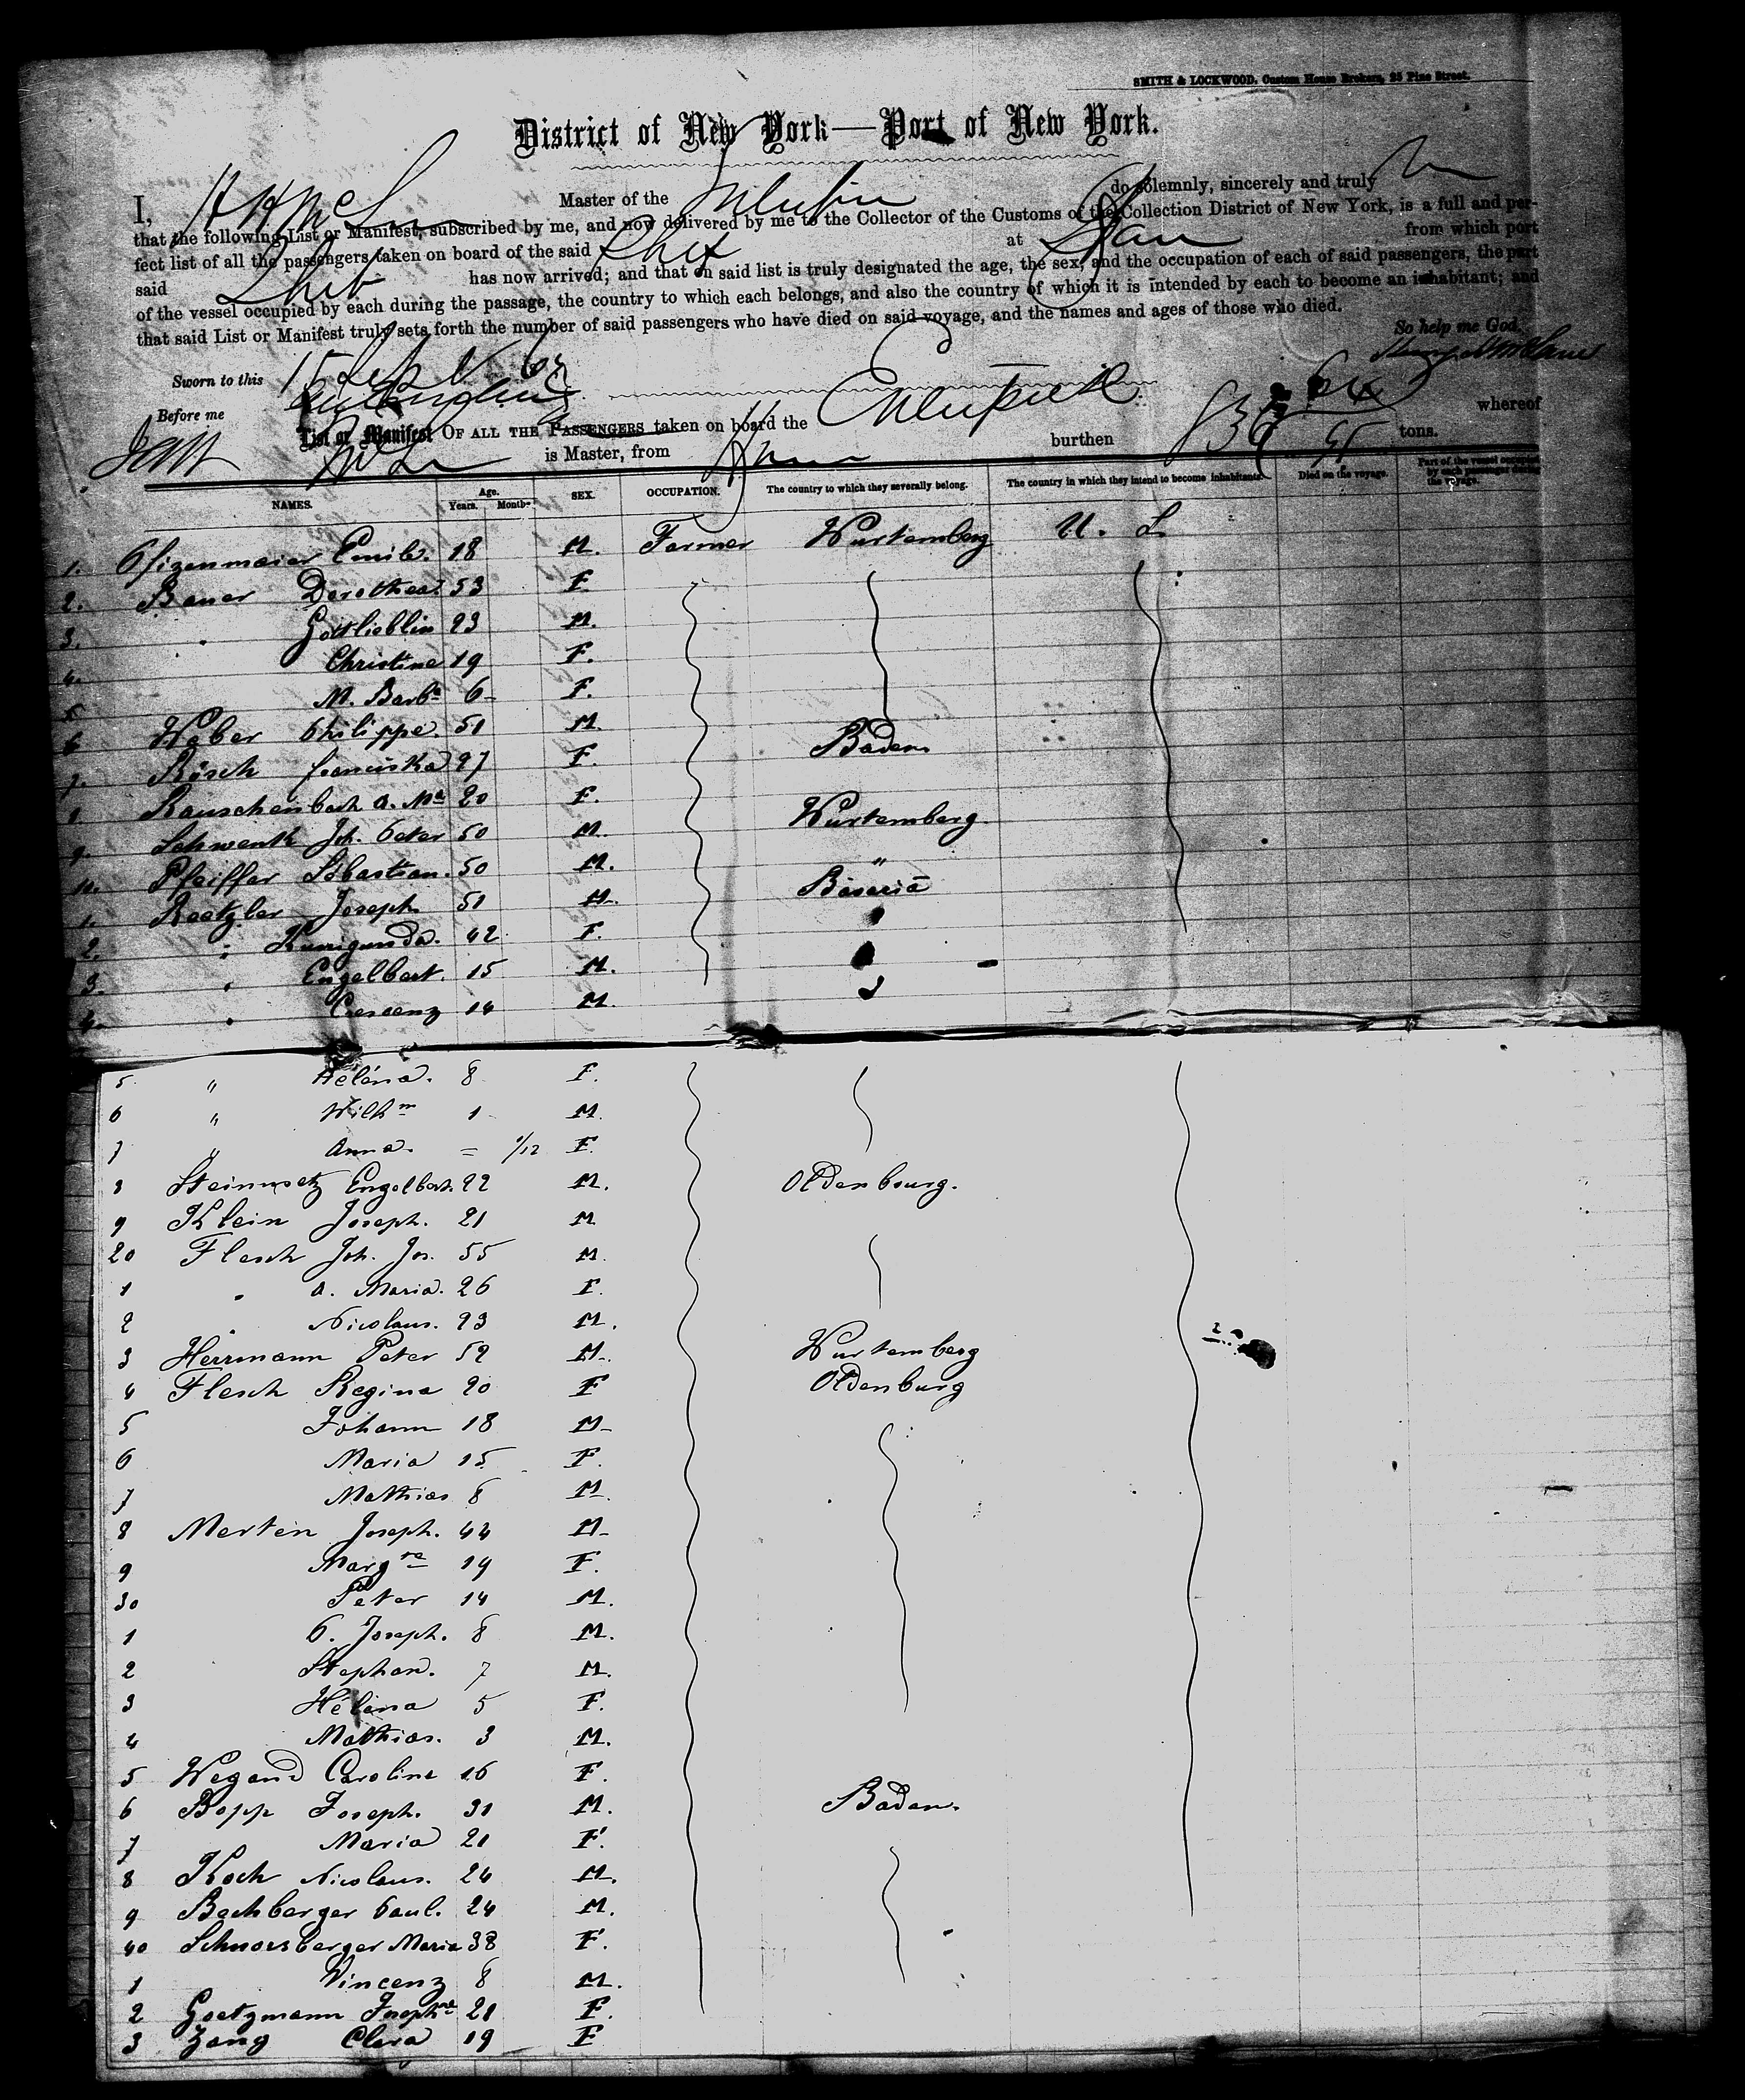 SMITH & LOCKWOOD, Custom House Brokers, 25 Pine Street.
District of New York—Port of New York.
I, Master of the do solemnly, sincerely and truly
that the following List or Manifest, subscribed by me, and now delivered by me to the Collector of the Customs of the Collection District of New York, is a full and per-
fect list of all the passengers taken on board of the said Ship at from which port
said Ship has now arrived; and that on said list is truly designated the age, the sex, and the occupation of each of said passengers, the part
of the vessel occupied by each during the passage, the country to which each belongs, and also the country of which it is intended by each to become an inhabitant; and
that said List or Manifest truly sets forth the number of said passengers who have died on said voyage, and the names and ages of those who died.
So help me God.
Sworn to this 15
Before me
List or Manifest OF ALL THE PASSENGERS taken on board the burthen tons. whereof
is Master, from
NAMES. Age. Years. Months SEX. OCCUPATION. The country to which they severally belong. The country in which they intend to become inhabitants. Died on the voyage. Part of the vessel occupied by each passenger during the voyage.
1. Pfizenmaier Emile. 18 M. Farmer Wurtemberg U. S.
2. Bauer Dorothea. 53 F.
3. " Gottlieblin 23 M.
4. Christine 19 F.
5 M. Barba 6 F.
6 Weber Philippe. 51 M.
7. Rösch franciska 27 F. Baden
8 Rauschenbach A. Ma 20 F.
9. Schwenk Joh. Peter 50 M. Wurtemberg
10. Pfeiffer Sebastian. 50 M. "
1. Roetzler Joseph 51 M. Bavaria
2. " Kunigunda. 42 F.
3. " Engelbert. 15 M.
4. " Crescenz 14 M.
5 " Heléna. 8 F.
6 " Wilhm 1 M.
7 " Anna. = 1/12 F.
8 Steinmetz Engelbert. 22 M. Oldenbourg.
9 Klein Joseph. 21 M
20 Flesch Joh. Jos. 55 M.
1 " A. Maria. 26 F.
2 " Nicolaus. 23 M.
3 Herrmann Peter 52 M. Wurtemberg
4 Flesch Regina 20 F Oldenburg
5 Johann 18 M.
6 Maria 15 F.
7 Mathias 8 M.
8 Merten Joseph. 44 M.
9 Margre 19 F.
30 Peter 14 M.
1 P. Joseph. 8 M.
2 Stephan. 7 M.
3 Héléna 5 F.
4 Mathias. 3 M.
5 Wegand Caroline 16 F.
6 Bopp Joseph. 31 M. Baden.
7 Maria 21 F.
8 Koch Nicolaus. 24 M.
9 Bechberger Paul. 24 M.
40 Schnorrberger Maria 38 F.
1 Vincenz 8 M.
2 Goetzmann Josephne 21 F.
3 Zang Clara 19 F